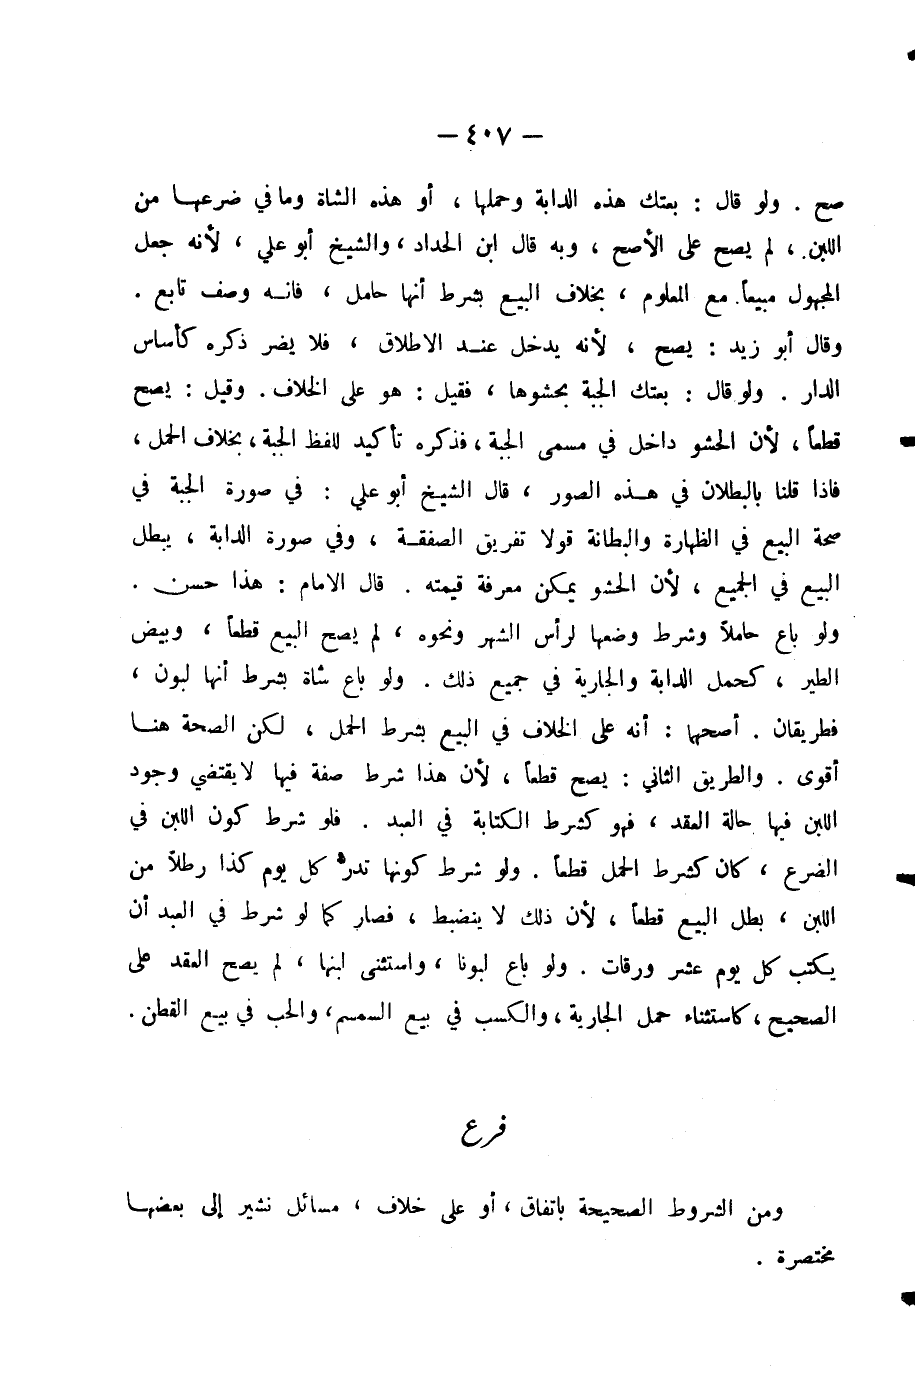 — ٤٠٧ —
صح . ولو قال : بعتك هذه الدابة وحملها ، أو هذه الشاة وما في ضرعهـا من
اللبن . ، لم يصح على الأصح ، وبه قال ابن الحداد ، والشيخ أبو علي ، لأنه جعل
المجهول مبيعاً . مع المعلوم ، بخلاف البيع بشرط أنها حامل ، فانـه وصف تابع .
وقال أبو زيد : يصح ، لأنه يدخل عنـد الاطلاق ، فلا يضر ذكره كأساس
الدار . ولو قال : بعتك الجبة بحشوها ، فقيل : هو على الخلاف . وقيل : يصح
قطعاً ، لأن الحشو داخل في مسمى الجبة ، فذكره تأكيد للفظ الجبة ، بخلاف الحمل ،
فاذا قلنا بالبطلان في هـذه الصور ، قال الشيخ أبو علي : في صورة الجبة في
صحة البيع في الظهارة والبطانة قولا تفريق الصفقـة ، وفي صورة الدابة ، يبطل
البيع في الجميع ، لأن الحشو يمكن معرفة قيمته . قال الامام : هذا حسن .
ولو باع حاملاً وشرط وضعها لرأس الشهر ونحوه ، لم يصح البيع قطعاً ، وبيض
الطير ، كحمل الدابة والجارية في جميع ذلك . ولو باع شاة بشرط أنها لبون ،
فطريقان . أصحها : أنه على الخلاف في البيع بشرط الحمل ، لكن الصحة هنـا
أقوى . والطريق الثاني : يصح قطعاً ، لأن هذا شرط صفة فيها لا يقتضي وجود
اللبن فيها حالة العقد ، فهو كشرط الكتابة في العبد . فلو شرط كون اللبن في
الضرع ، كان كشرط الحمل قطعاً . ولو شرط كونها تدر كل يوم كذا رطلاً من
اللبن ، بطل البيع قطعاً ، لأن ذلك لا ينضبط ، فصار كما لو شرط في العبد أن
يكتب كل يوم عشر ورقات . ولو باع لبونا ، واستثنى لبنها ، لم يصح العقد على
الصحيح ، كاستثناء حمل الجارية ، والكسب في بيع السمسم ، والحب في بيع القطن .
فرع
ومن الشروط الصحيحة باتفاق ، أو على خلاف ، مسائل نشير إلى بعضهـا
مختصرة .